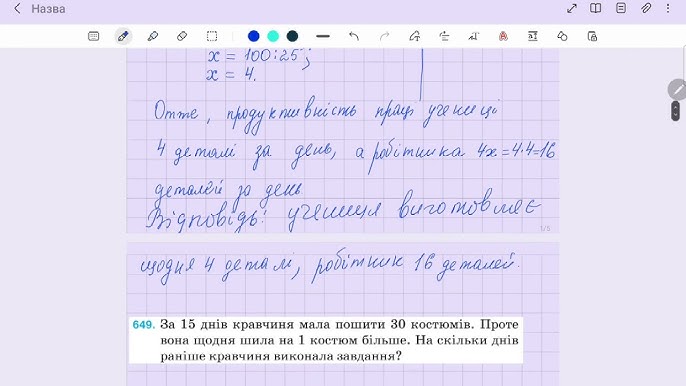 Назва
x = 100:25;
x = 4.
Отже, продуктивність праці учениці
4 деталі за день, а робітника 4x=4·4=16
деталей за день
Відповідь: учениця виготовляє
1/5
щодня 4 деталі, робітник 16 деталей.
649. За 15 днів кравчиня мала пошити 30 костюмів. Проте
вона щодня шила на 1 костюм більше. На скільки днів
раніше кравчиня виконала завдання?